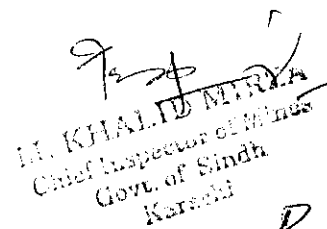 KHALID MIRZA
Chief Inspector of Mines
Govt. of Sindh
Karachi